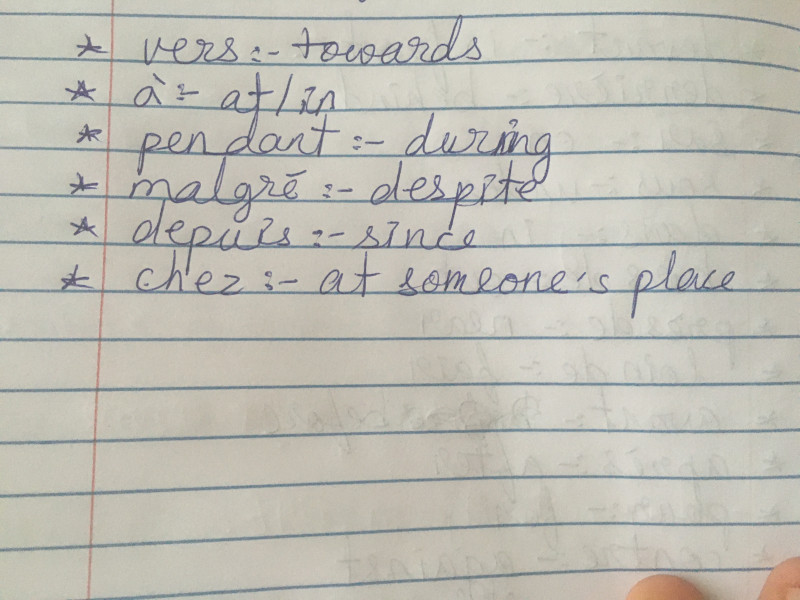 * vers :- towards
* à :- at/in
* pendant :- during
* malgré :- despite
* depuis :- since
* chez :- at someone's place